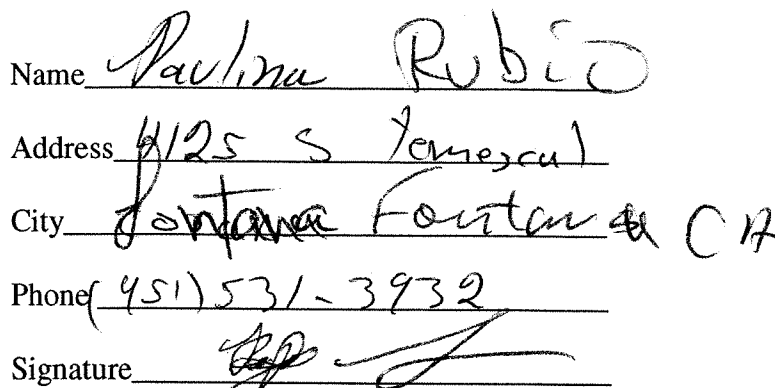 Name Paulina Rubio
Address 4125 S Temescal
City Fontana Fontana CA
Phone (951) 531-3932
Signature